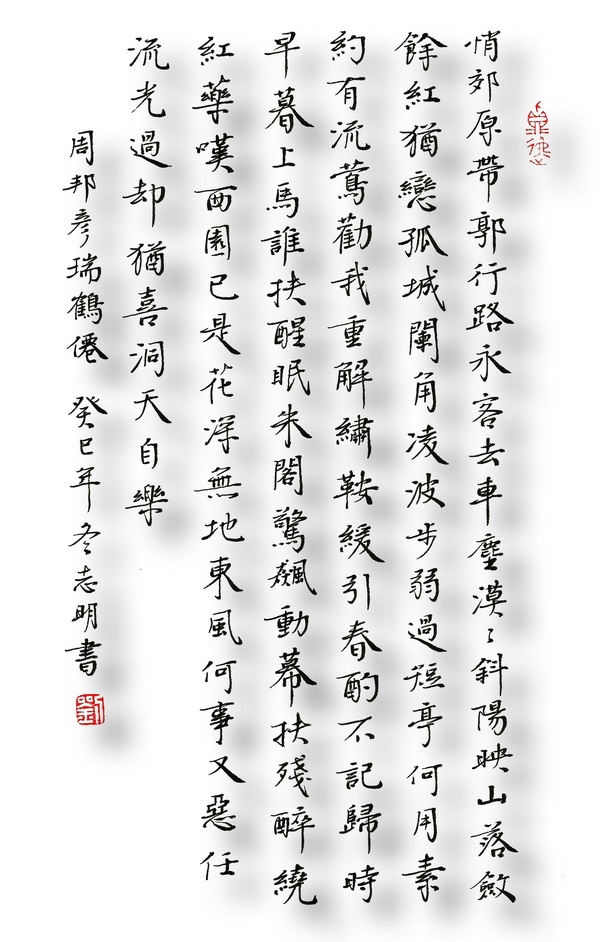 悄郊原帶郭行路永客去車塵漠〻斜陽映山落斂
餘紅猶戀孤城闌角凌波步弱過短亭何用素
約有流鶯勸我重解繡鞍緩引春酌不記歸時
早暮上馬誰扶醒眠朱閣驚飆動幕扶殘醉繞
紅藥嘆西園已是花深無地東風何事又惡任
流光過却猶喜洞天自樂
周邦彥瑞鶴僊 癸巳年冬志明書
劉